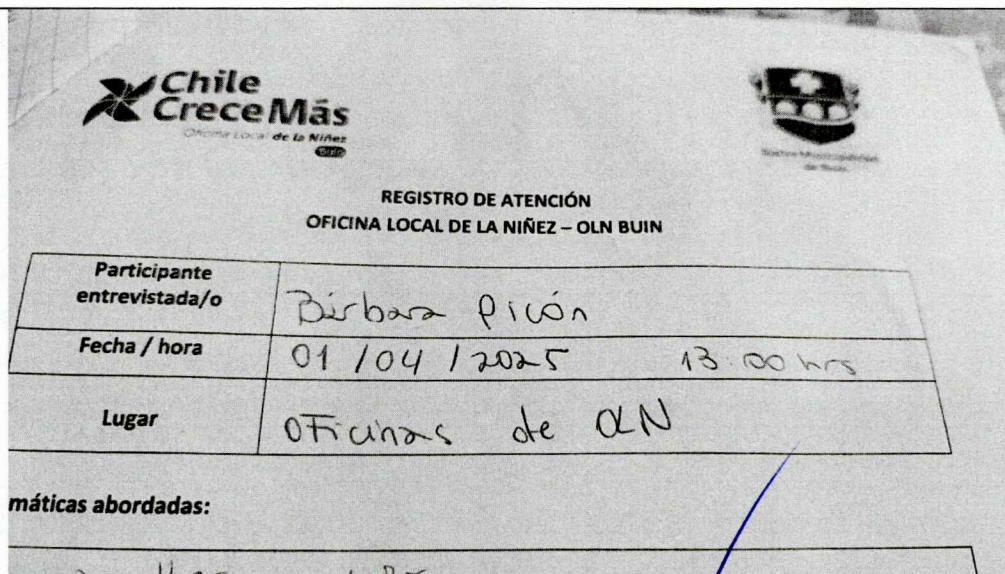 Chile
CreceMás
Oficina Local de la Niñez
Buin
REGISTRO DE ATENCIÓN
OFICINA LOCAL DE LA NIÑEZ – OLN BUIN
Participante
entrevistada/o
Bárbara Picón
Fecha / hora
01/04/2025 13:00 hrs
Lugar
OFicinas de OLN
máticas abordadas: